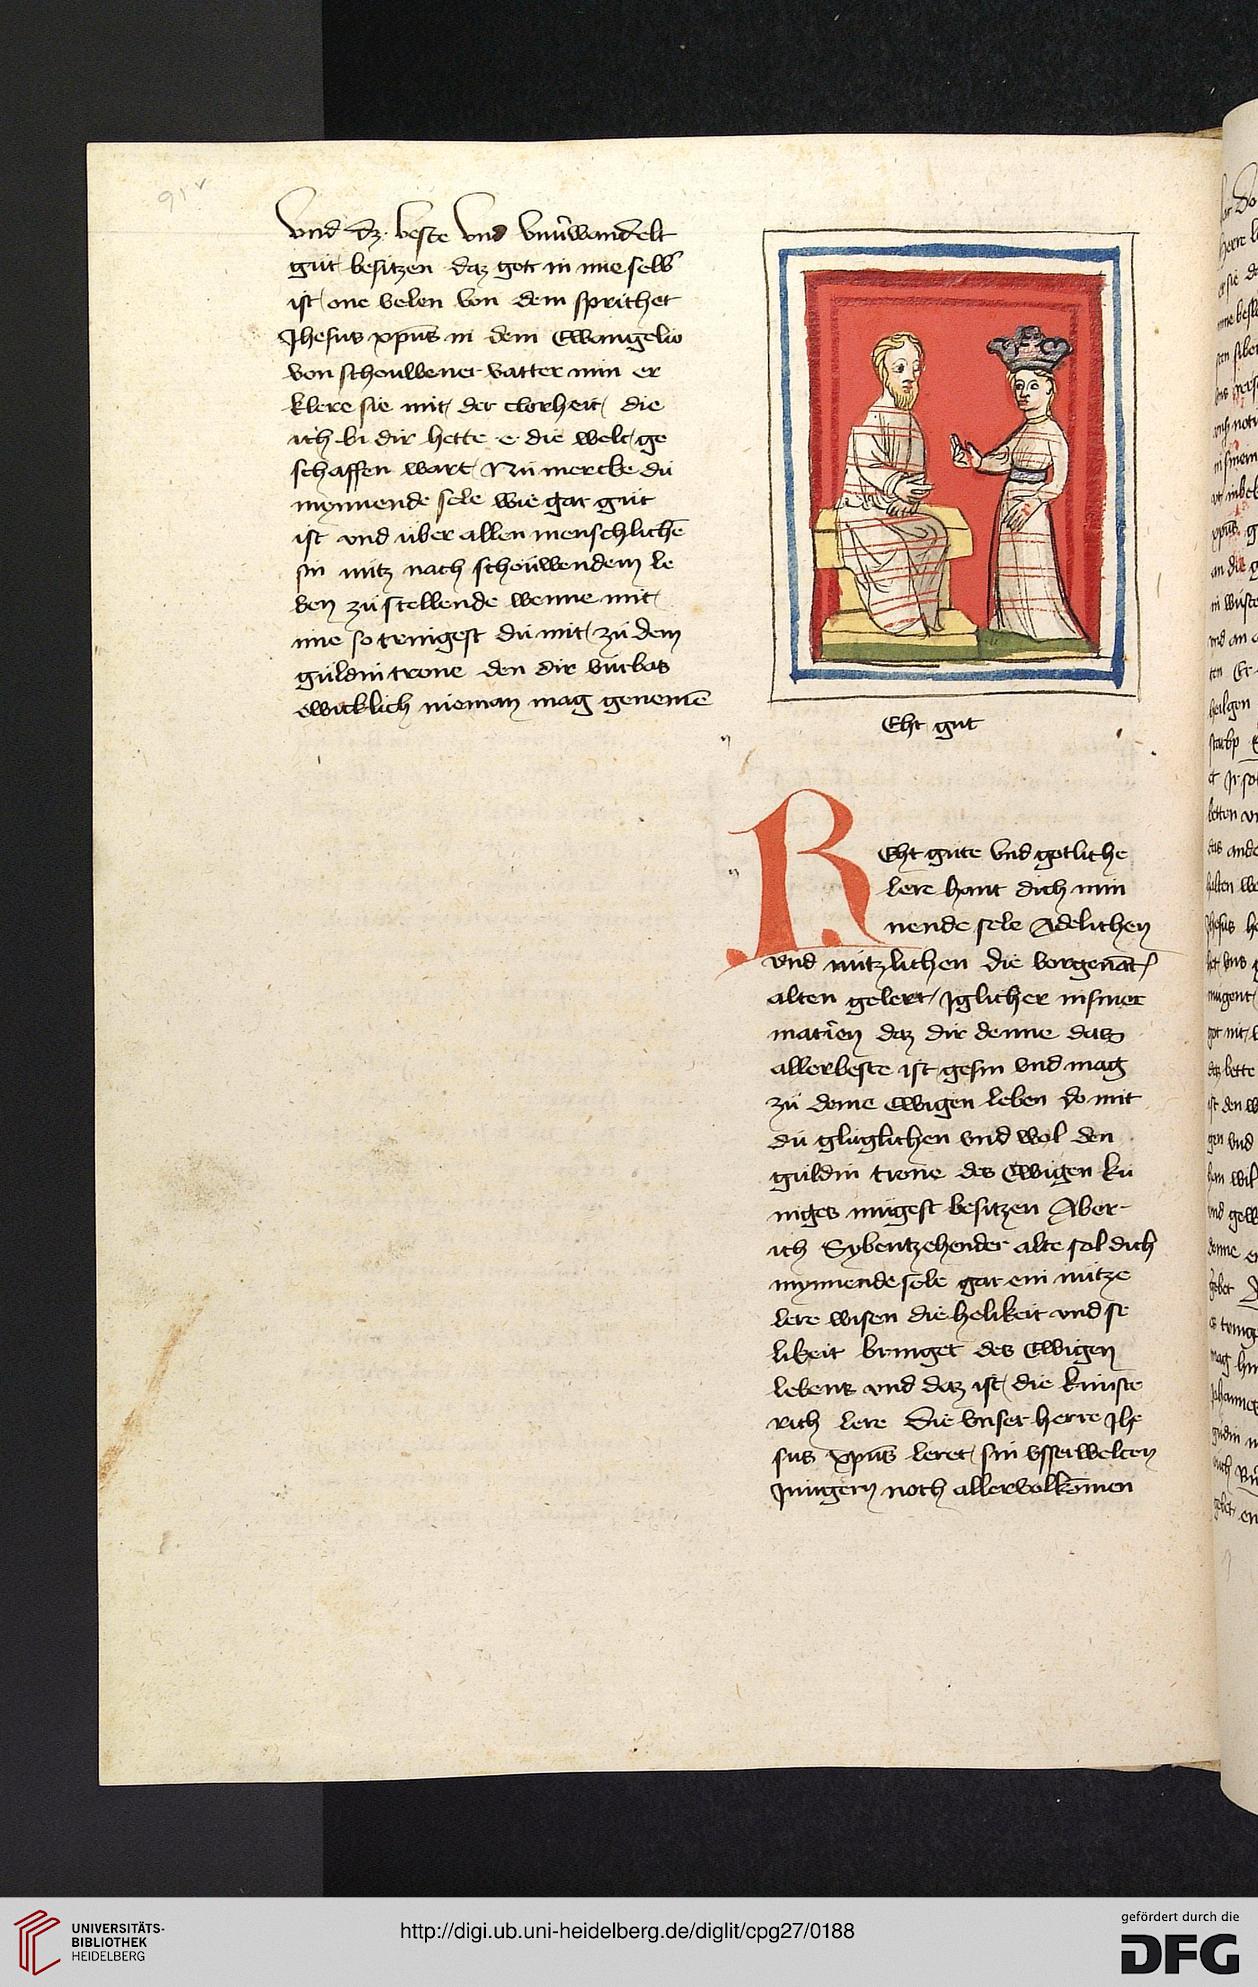 91v
Vnd dz beste vnd vnúwandelt
gůt besitzen daz got in ime selb
ist one velen von dem sprichet
Jhesus xpūs in dem Ewangelio
von schouwener vatter min er
klere sie mit der clorheit die
ich bi dir hette e die welt ge
schaffen wart Nu mercke du
mynnende sele wie gar gůt
ist vnd über allen menschlichē
sin nútz nach schöuwendem le
ben zů stellende wenne mit
ime so tringest du mit zů dem
güldin trone den dir fürbas
ewicklich nieman mag genemē
Eht gut
REht gute vnd gotliche
lere hant dich min
nende sele Adelichen
vnd nützlichen die vorgenāt
alten gelert Jglicher in siner
materien daz dir denne das
allerbeste ist gesin vnd mag
zů dome Ewigen leben do mit
du glüglichen vnd wol den
guldin trone des Ewigen kú
niges mügest besitzen Aber
ich Sybentzehender alte sol dich
mynnende sele gar ein nútze
lere wisen die helikeit vnd se
likeit bringet des Ewigen
lebens vnd daz ist die kunste
rich lere die vnser herre Jhe
sus xpūs leret sin vsserwelten
Jungern noch allervolkōmen
UNIVERSITÄTS-
BIBLIOTHEK
HEIDELBERG
http://digi.ub.uni-heidelberg.de/diglit/cpg27/0188
gefördert durch die
DFG